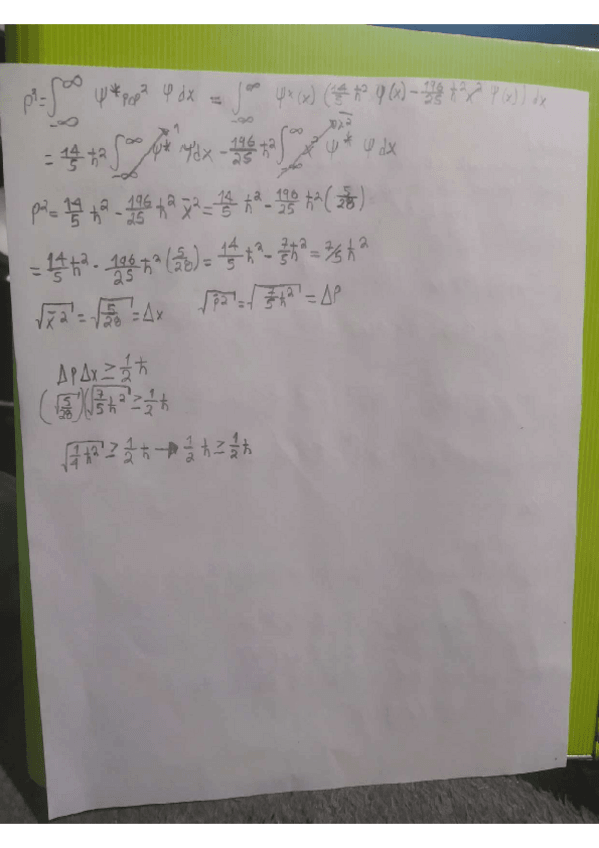 p² = ∫_{-∞}^{∞} ψ* Pop² ψ dx = ∫_{-∞}^{∞} ψ*(x) (14/5 ħ² ψ(x) - 196/25 ħ² x² ψ(x)) dx
= 14/5 ħ² ∫_{-∞}^{∞} ψ* ψ dx ↗ 1 - 196/25 ħ² ∫_{-∞}^{∞} x² ψ* ψ dx ↗ x̄²
p² = 14/5 ħ² - 196/25 ħ² x̄² = 14/5 ħ² - 196/25 ħ² (5/28)
= 14/5 ħ² - 196/25 ħ² (5/28) = 14/5 ħ² - 7/5 ħ² = 7/5 ħ²
√x̄² = √5/28 = Δx √p̄² = √7/5 ħ² = Δp
Δp Δx ≥ 1/2 ħ
(√5/28)(√7/5 ħ²) ≥ 1/2 ħ
√1/4 ħ² ≥ 1/2 ħ → 1/2 ħ ≥ 1/2 ħ